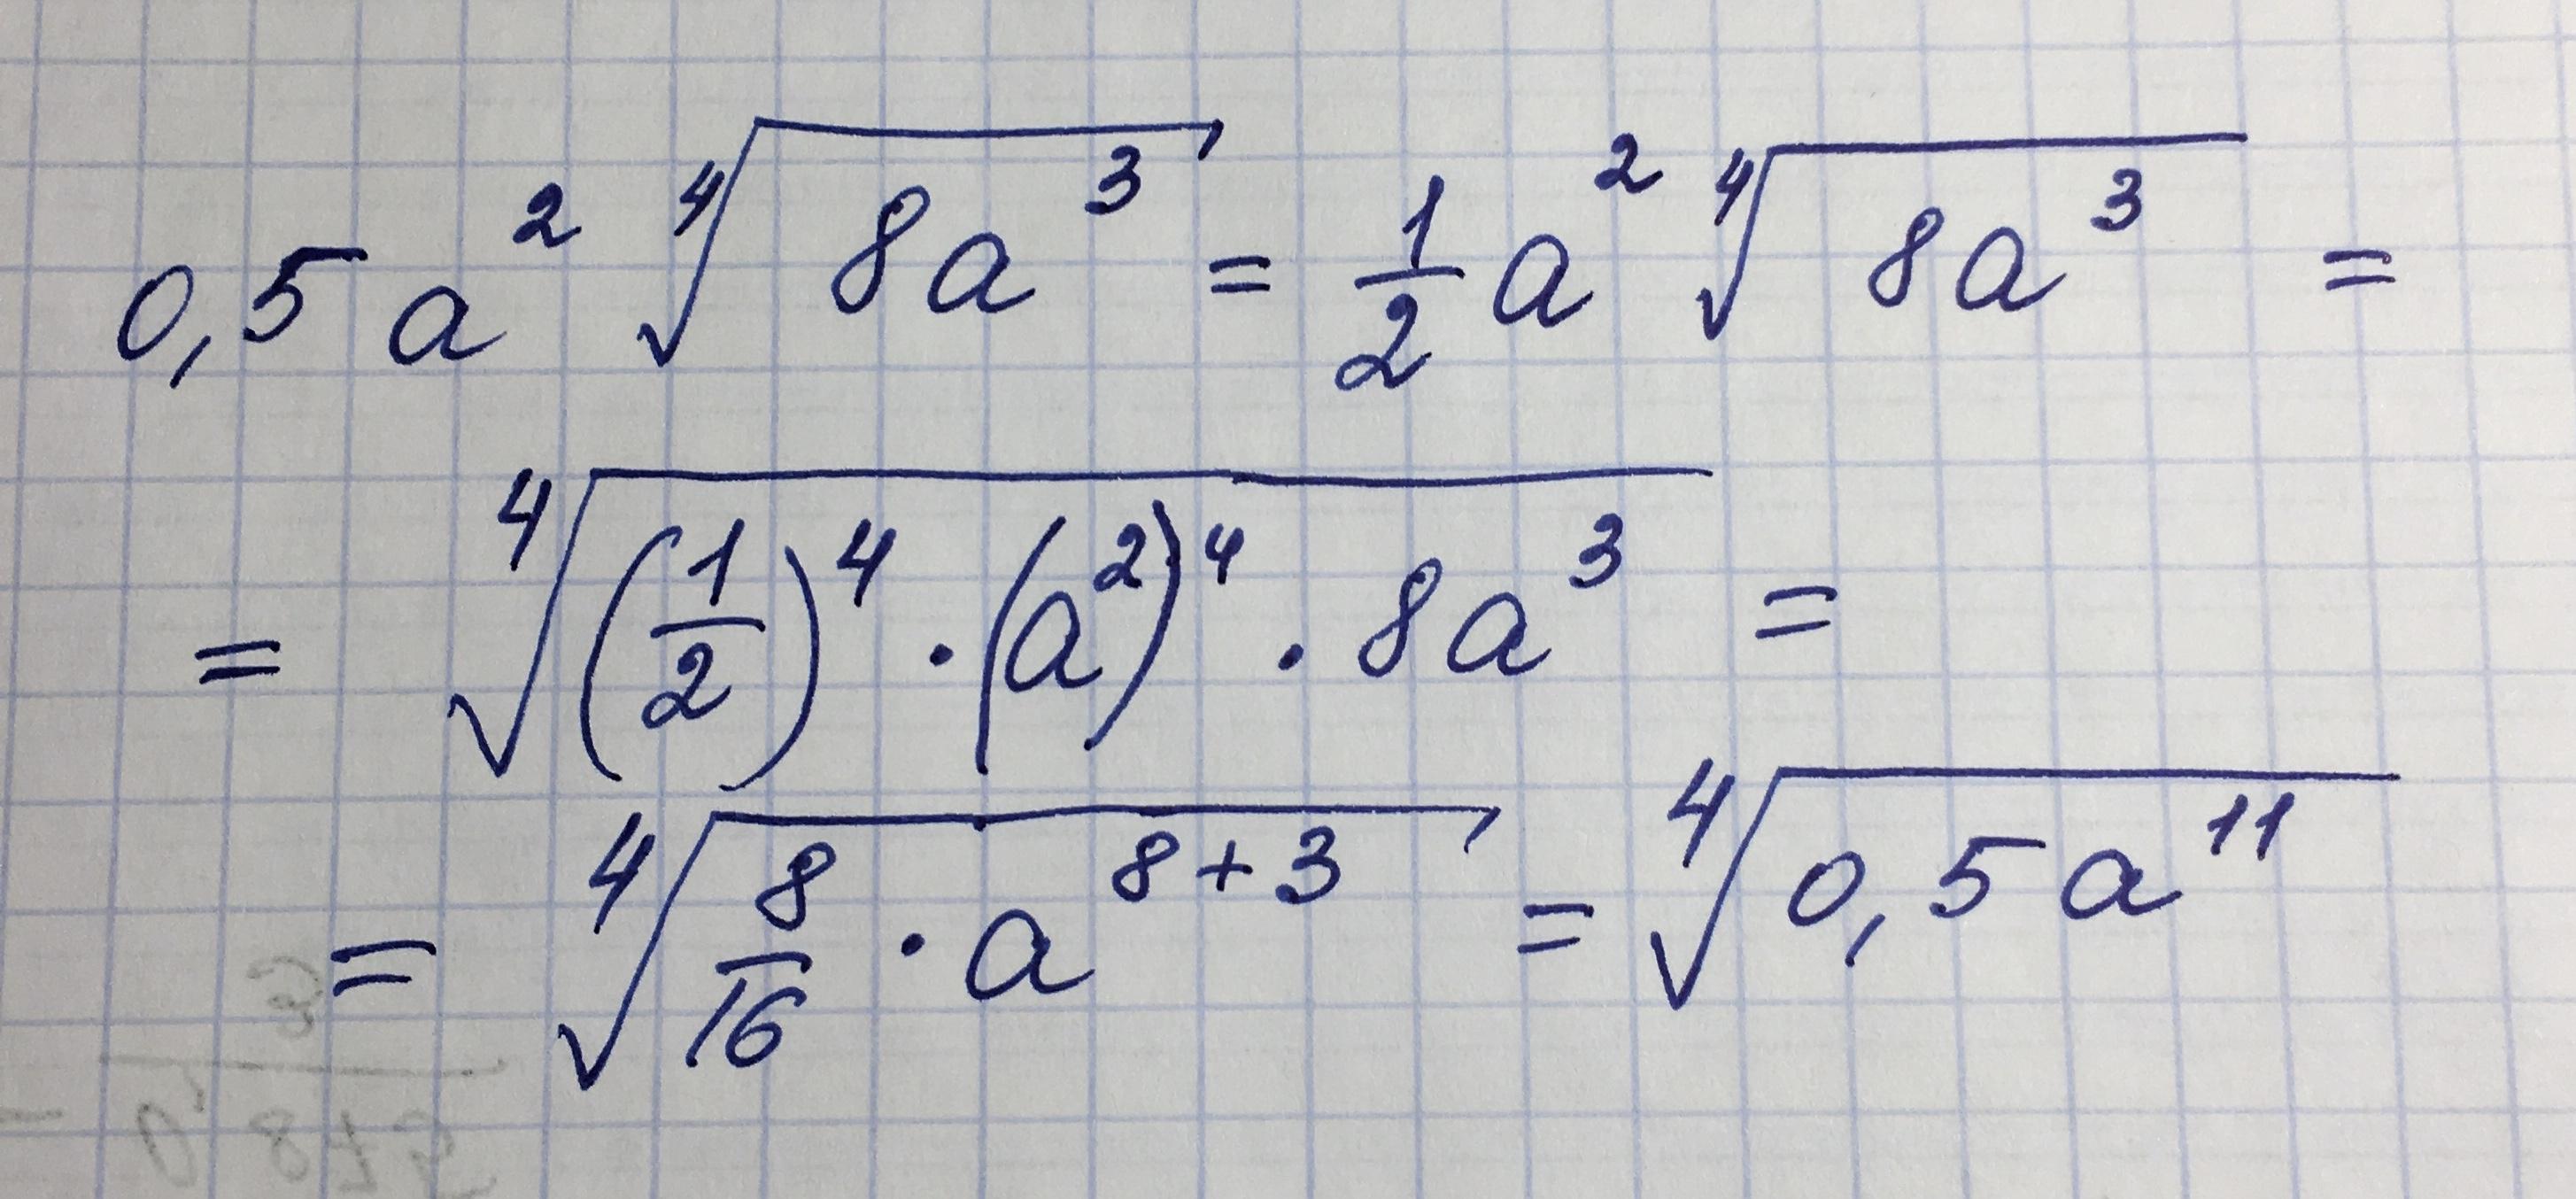 0,5a² ⁴√(8a³) = 1/2 a² ⁴√(8a³) =
= ⁴√((1/2)⁴ · (a²)⁴ · 8a³) =
= ⁴√(8/16 · a⁸⁺³) = ⁴√(0,5a¹¹)